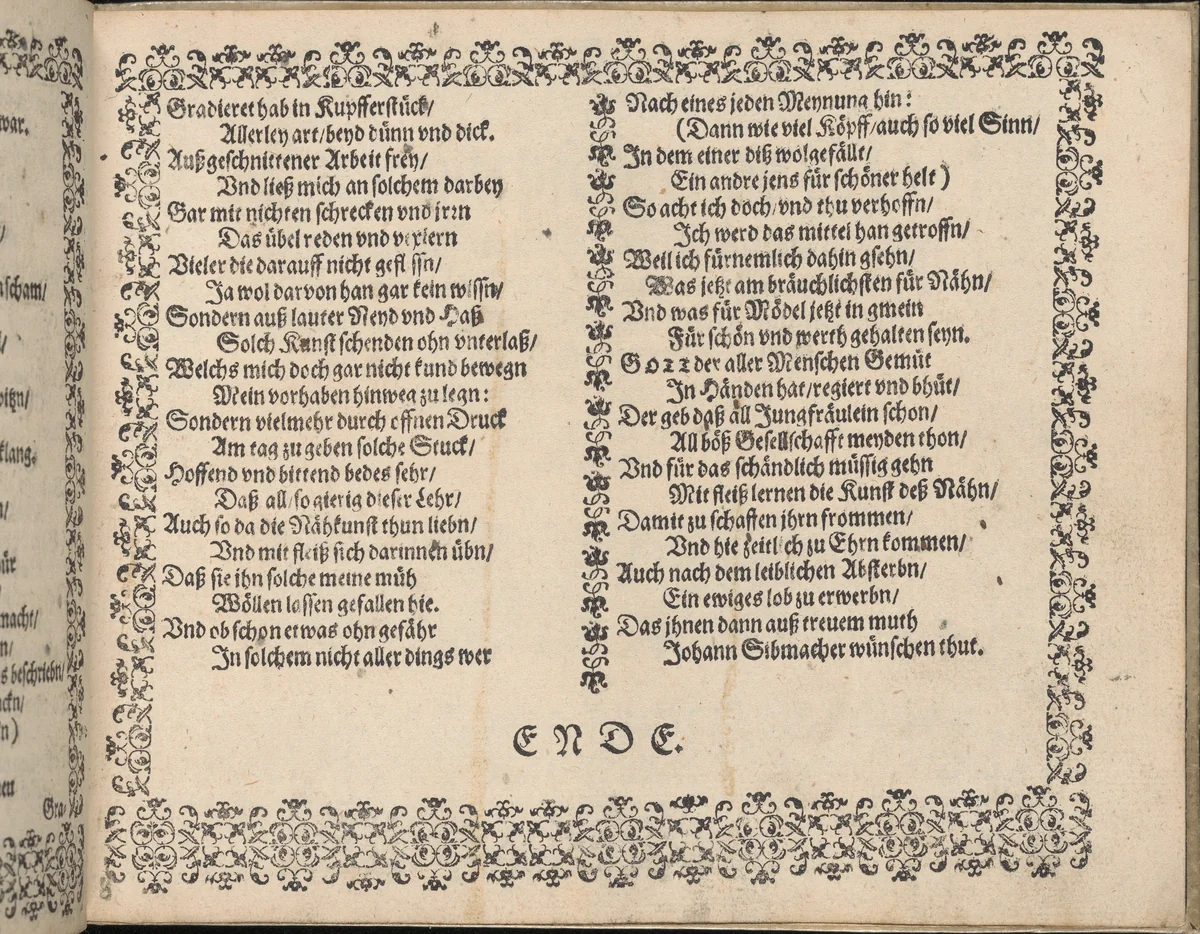 war.
nscham/
witzn/
klang.
macht/
s beschriebn/
Gra
Gradieret hab in Kupfferstück/
Allerley art/beyd dünn vnd dick.
Außgeschnittener Arbeit frey/
Vnd ließ mich an solchem darbey
Gar mit nichten schrecken vnd jrrn
Das übel reden vnd vexiern
Vieler die darauff nicht geflissn/
Ja wol darvon han gar kein wissn/
Sondern auß lauter Neyd vnd Haß
Solch Kunst schenden ohn vnterlaß/
Welchs mich doch gar nicht kund bewegn
Mein vorhaben hinweg zu legn:
Sondern vielmehr durch offnen Druck
Am tag zu geben solche Stuck/
Hoffend vnd bittend bedes sehr/
Daß all/so gierig dieser Lehr/
Auch so da die Nähkunst thun liebn/
Vnd mit fleiß sich darinnen übn/
Daß sie ihn solche meine müh
Wöllen lassen gefallen hie.
Vnd ob schon etwas ohn gefähr
In solchem nicht aller dings wer
Nach eines jeden Meynung hin:
(Dann wie viel Köpff/auch so viel Sinn/
In dem einer diß wolgefällt/
Ein andre jens für schöner helt)
So acht ich doch/vnd thu verhoffn/
Ich werd das mittel han getroffn/
Weil ich fürnemlich dahin gsehn/
Was jetzt am bräuchlichsten für Nähn/
Vnd was für Mödel jetzt in gmein
Für schön vnd werth gehalten seyn.
GOTT der aller Menschen Gemüt
In Händen hat/regiert vnd bhüt/
Der geb daß all Jungfräulein schon/
All böß Gesellschafft meyden thon/
Vnd für das schändlich müssig gehn
Mit fleiß lernen die Kunst deß Nähn/
Damit zu schaffen jhrn frommen/
Vnd hie zeitlich zu Ehrn kommen/
Auch nach dem leiblichen Absterbn/
Ein ewiges lob zu erwerbn/
Das jhnen dann auß treuem muth
Johann Sibmacher wünschen thut.
ENDE.